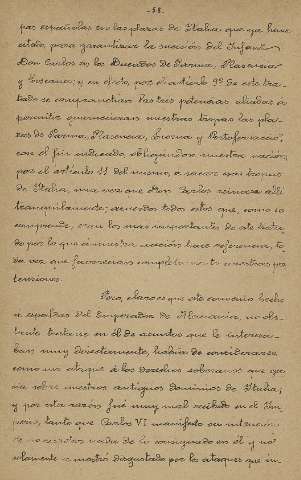 -58-
pas españolas en las plazas de Italia, que que hemos
citado, para garantizar la sucesión del Infante
Don Carlos en los Ducados de Parma, Plasencia
y Toscana; y en efecto, por el artículo 9º de este tra-
tado se comprometieron las tres potencias aliadas a
permitir guarneciesen nuestras tropas las pla-
zas de Parma, Plasencia, Liorna y Portoferraio,
con el fin indicado, obligándose nuestra nación,
por el artículo 11 del mismo, a sacar sus tropas
de Italia, una vez que Don Carlos reinara allí
tranquilamente; acuerdos todos estos que, como se
comprende, eran los más importantes de este trata-
do por lo que a nuestra nación hace referencia, to-
da vez que favorecían completamente nuestras pre-
tensiones.
Pero, claro es que este convenio hecho
a espaldas del Emperador de Alemania, no obs-
tante tratarse en él de asuntos que le interesa-
ban muy directamente, había de considerarse
como un ataque a los derechos soberanos que que
sobre nuestros antiguos dominios de Italia;
y por esta razón fué muy mal recibido en el Im-
perio, tanto que Carlos VI manifestó su intención
de no acceder a nada de lo consignado en él y no
solamente se mostró disgustado por los ataques que im-